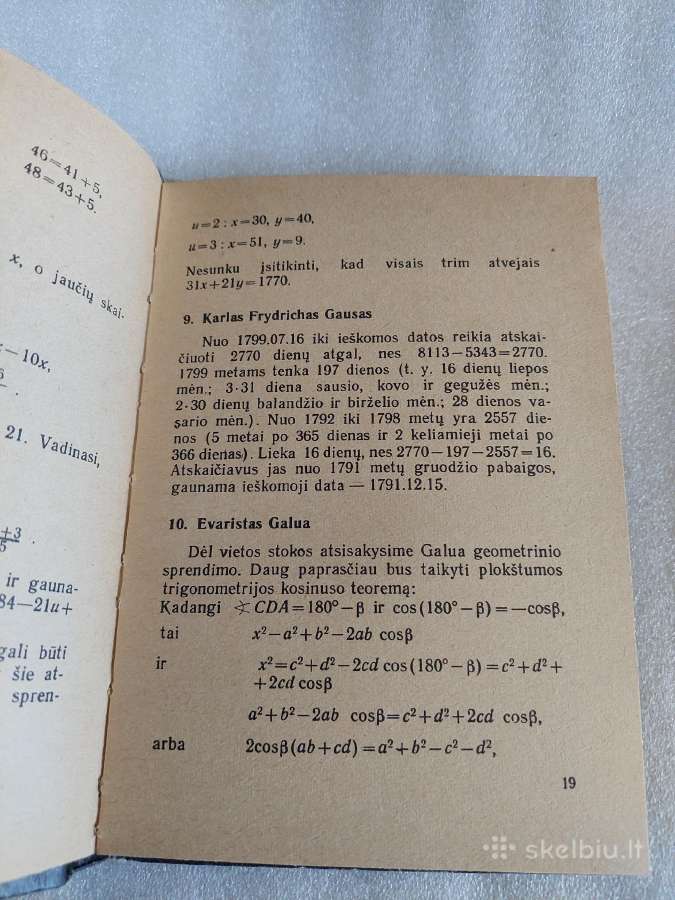 46=41+5,
48=43+5.
x, o jaučių skai-
x—10x,
21. Vadinasi,
ir gauna-
84—21u+
gali būti
šie at-
spren-
u=2 : x=30, y=40,
u=3 : x=51, y=9.
Nesunku įsitikinti, kad visais trim atvejais
31x+21y=1770.
9. Karlas Frydrichas Gausas
Nuo 1799.07.16 iki ieškomos datos reikia atskai-
čiuoti 2770 dienų atgal, nes 8113—5343=2770.
1799 metams tenka 197 dienos (t. y. 16 dienų liepos
mėn.; 3·31 diena sausio, kovo ir gegužės mėn.;
2·30 dienų balandžio ir birželio mėn.; 28 dienos va-
sario mėn.). Nuo 1792 iki 1798 metų yra 2557 die-
nos (5 metai po 365 dienas ir 2 keliamieji metai po
366 dienas). Lieka 16 dienų, nes 2770—197—2557=16.
Atskaičiavus jas nuo 1791 metų gruodžio pabaigos,
gaunama ieškomoji data — 1791.12.15.
10. Evaristas Galua
Dėl vietos stokos atsisakysime Galua geometrinio
sprendimo. Daug paprasčiau bus taikyti plokštumos
trigonometrijos kosinuso teoremą:
Kadangi ∢CDA=180°—β ir cos(180°—β)=—cosβ,
tai x²—a²+b²—2ab cosβ
ir x²=c²+d²—2cd cos(180°—β)=c²+d²+
+2cd cosβ
a²+b²—2ab cosβ=c²+d²+2cd cosβ,
arba 2cosβ(ab+cd)=a²+b²—c²—d²,
19
skelbiu.lt